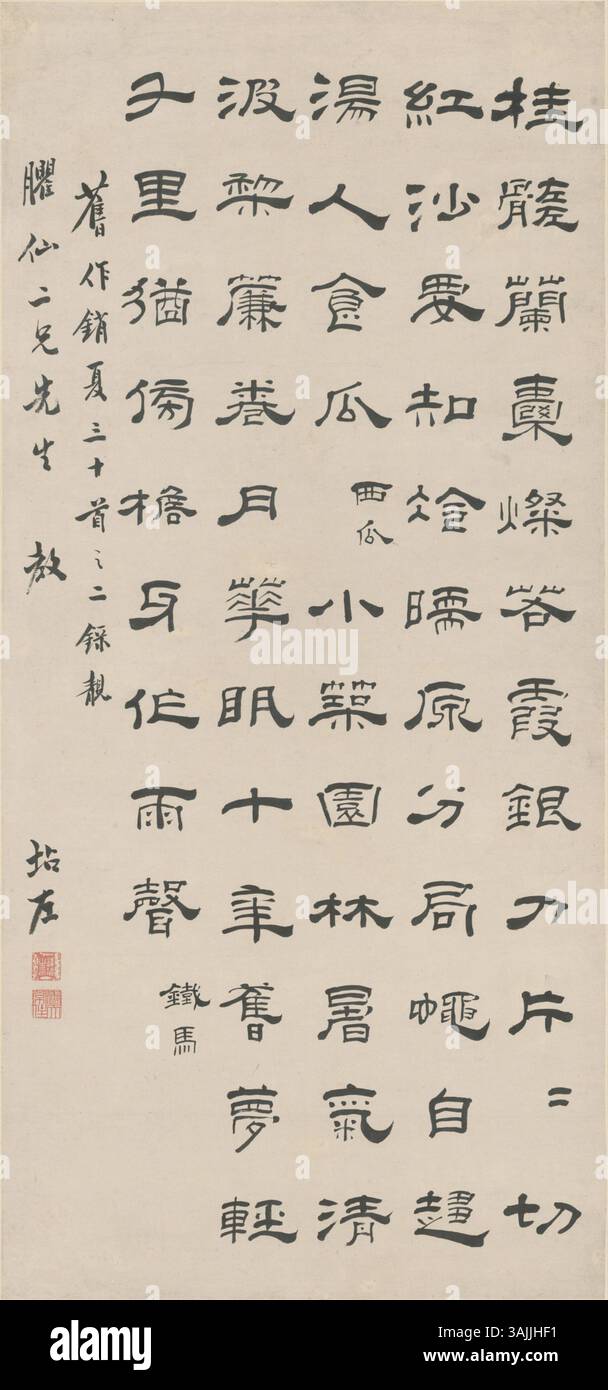 桂髓蘭櫜燦若霞銀刀片〻切
紅沙要知冷暖原分局蠅自趨
湯人食瓜 西瓜 小築園林暑氣清
波棃簾卷月華眀十年舊夢輕
千里猶傍檐牙作雨聲 鐵馬
舊作銷夏三十首之二錄覯
臞仙二兄先生 教
坫
alamy
Image ID: 3AJJHF1
www.alamy.com